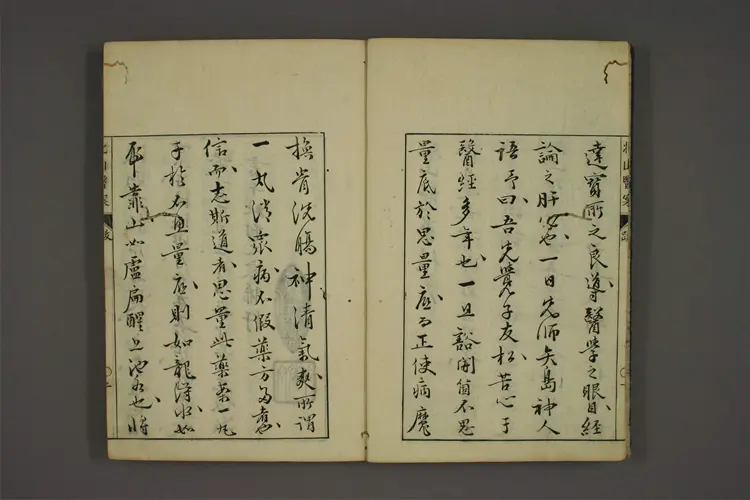 北山醫案
跋
達寳所之良導醫學之眼目經
論之肝心也一日先師矢島神人
語予曰吾先覺子友松苦心于
醫經多年也一旦豁開箇不思
量底於思量底而正使病魔
換骨洗腸神清氣爽所謂
一丸消衆病不假藥方多意
信而志斯道者思量此藥案一丸
子於不思量底則如龍得水如
虎靠山如盧扁醒上池水也時
北山醫案
跋